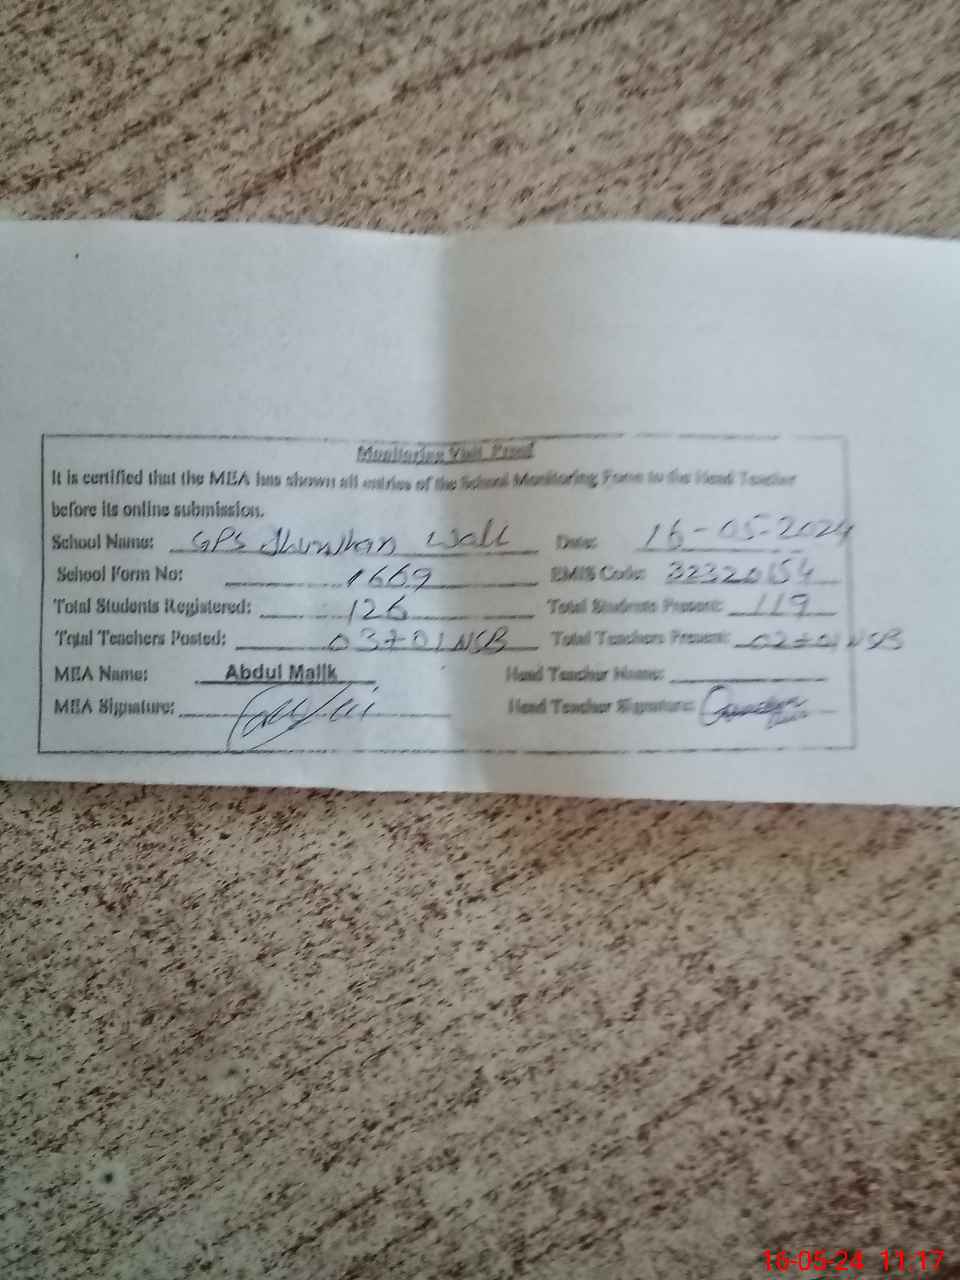 Monitoring Visit Proof
It is certified that the MEA has shown all entries of the School Monitoring Form to the Head Teacher
before its online submission.
School Name: GPS Wali Date: 16-05-2024
School Form No: 1669 EMIS Code: 32320154
Total Students Registered: 126 Total Students Present: 119
Total Teachers Posted: 03+01 NSB Total Teachers Present: 02+01 NSB
MEA Name: Abdul Malik Head Teacher Name:
MEA Signature: Head Teacher Signature:
16-05-24 11:17